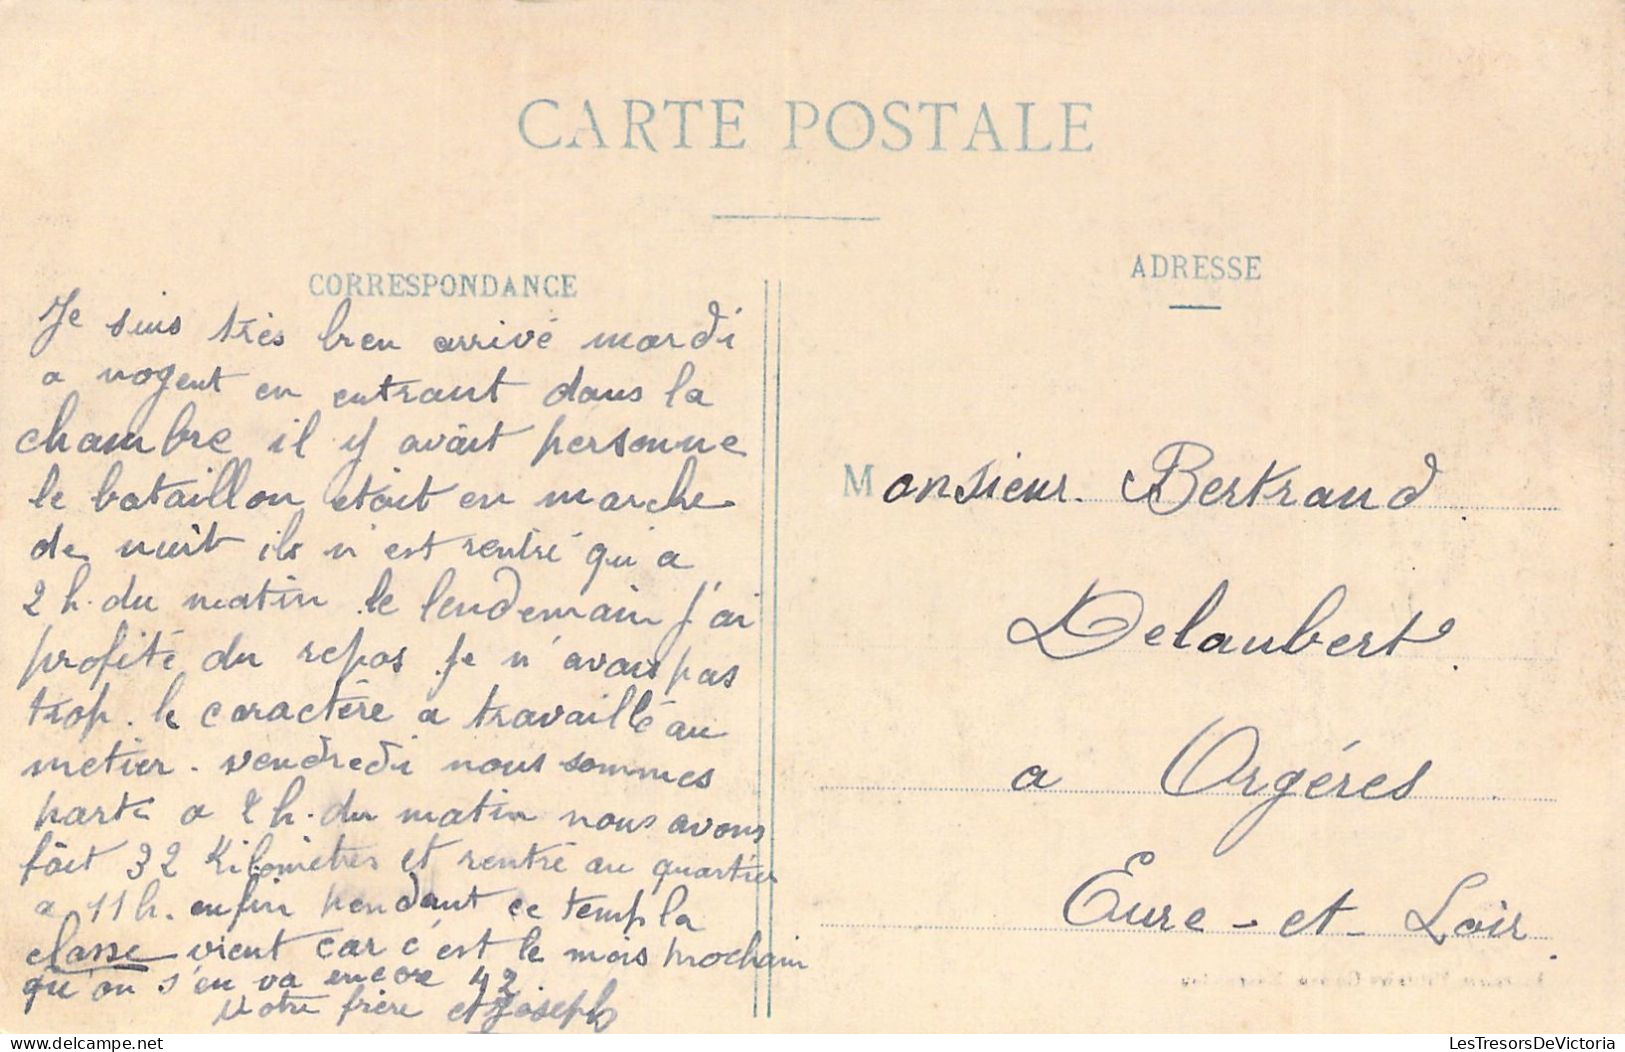 CARTE POSTALE
CORRESPONDANCE
Je suis très bien arrivé mardi
a nogent en entrant dans la
chambre il y avait personne
le bataillon était en marche
de nuit ils n'est rentré qu'a
2 h. du matin le lendemain j'ai
profité du repos je n'avais pas
trop. le caractère a travaillé au
metier. vendredi nous sommes
parti a 2 h. du matin nous avons
fait 32 Kilomètres et rentré au quartier
a 11 h. enfin pendant ce temp la
classe vient car c'est le mois prochain
qu'on s'en va encore 42
Votre frère et Joseph
ADRESSE
Monsieur Bertrand
Delaubert
a Orgéres
Eure-et-Loir.
delcampe.net
LesTresorsDeVictoria